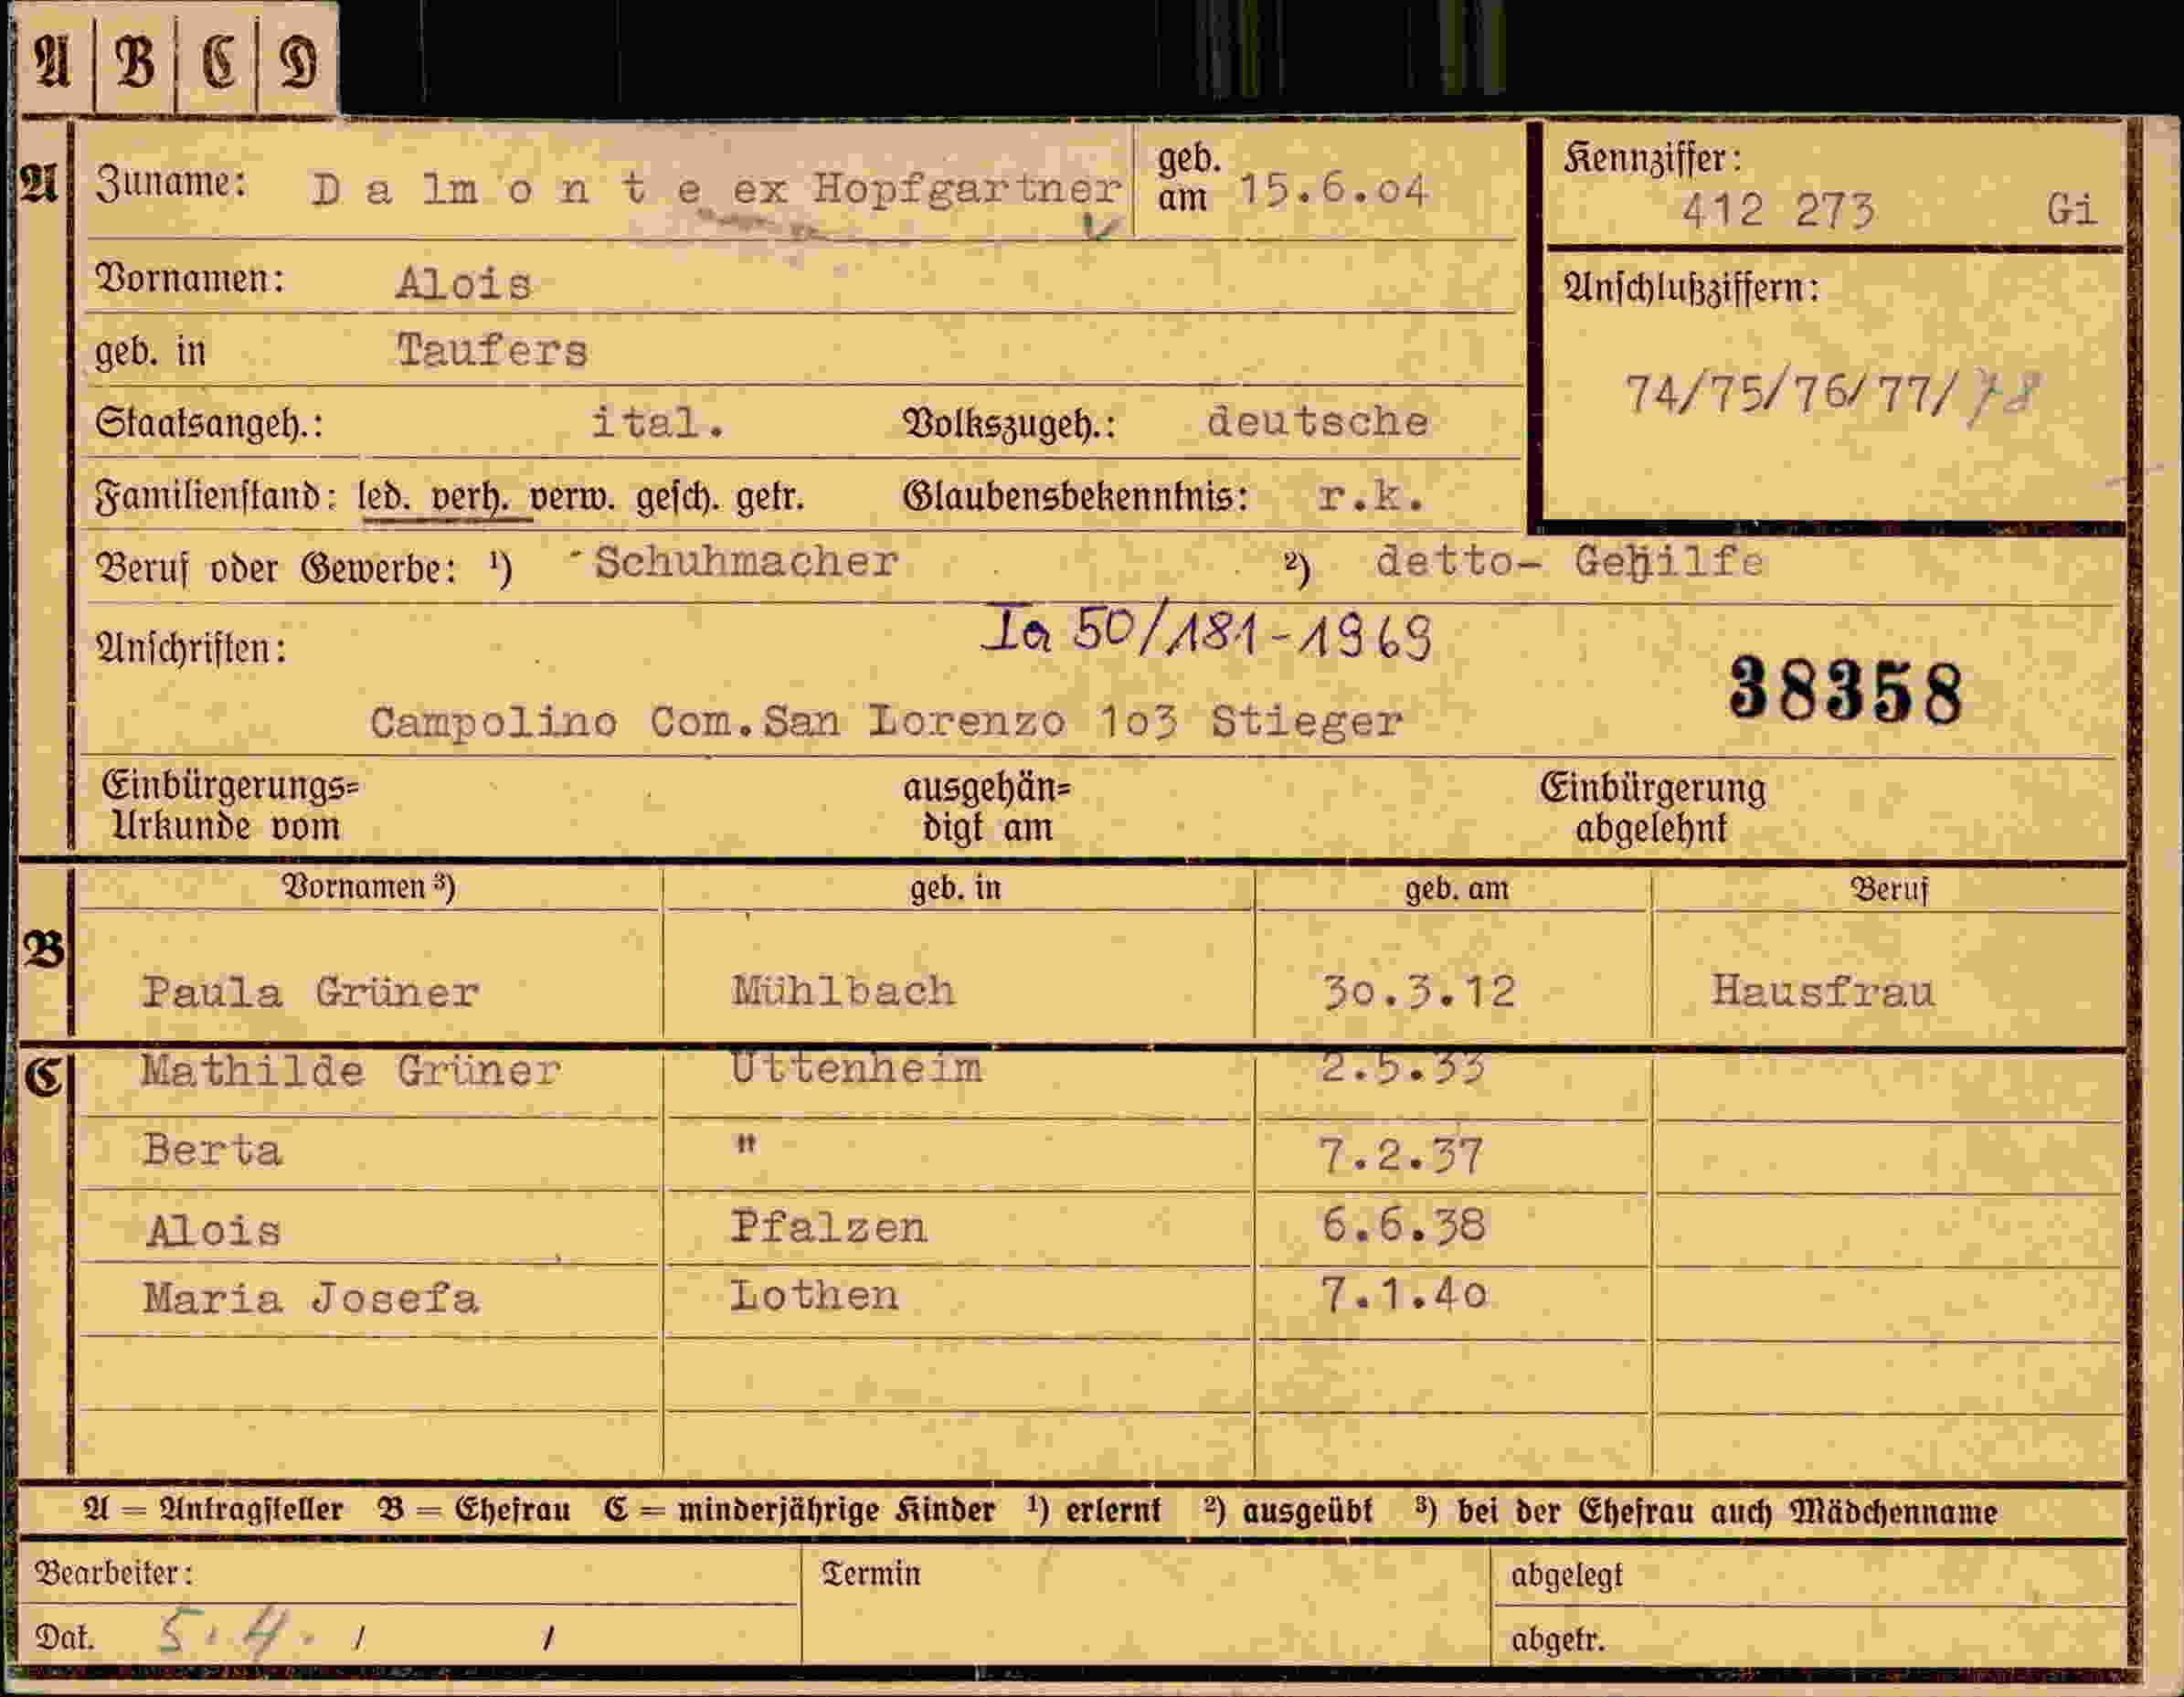 A B C D
A Zuname: Dalmonte ex Hopfgartner geb. am 15.6.04 Kennziffer: 412 273 Gi
Vornamen: Alois Anschlußziffern:
geb. in Taufers 74/75/76/77/78
Staatsangeh.: ital. Volkszugeh.: deutsche
Familienstand: led. verh. verw. gesch. getr. Glaubensbekenntnis: r.k.
Beruf oder Gewerbe: 1) Schuhmacher 2) detto- Gehilfe
Anschriften: Ia 50/181-1969
38358
Campolino Com.San Lorenzo 103 Stieger
Einbürgerungs= ausgehän= Einbürgerung
Urkunde vom digt am abgelehnt
Vornamen 3) geb. in geb. am Beruf
B
Paula Grüner Mühlbach 30.3.12 Hausfrau
C Mathilde Grüner Uttenheim 2.5.33
Berta " 7.2.37
Alois Pfalzen 6.6.38
Maria Josefa Lothen 7.1.40
A = Antragsteller B = Ehefrau C = minderjährige Kinder 1) erlernt 2) ausgeübt 3) bei der Ehefrau auch Mädchenname
Bearbeiter: Termin abgelegt
Dat. 5.4. / / abgetr.